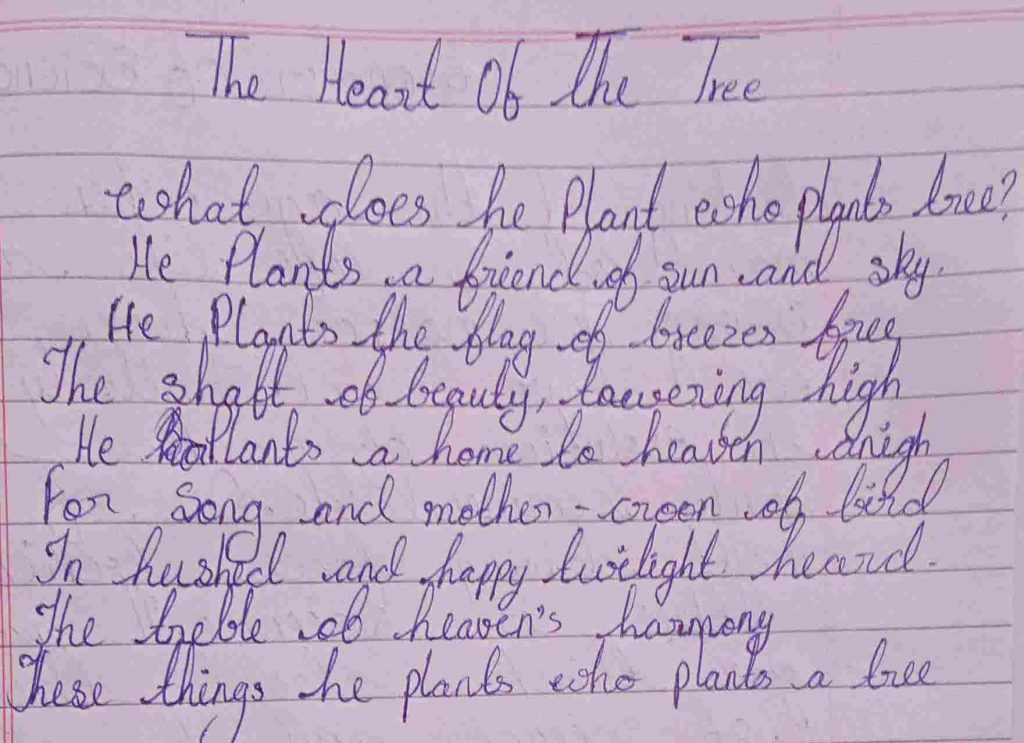 The Heart Of The Tree
What does he Plant who plants tree?
He Plants a friend of sun and sky.
He Plants the flag of breezes free
The shaft of beauty, towering high
He Plants a home to heaven anigh
For Song and mother-croon of bird
In hushed and happy twilight heard.
The treble of heaven's harmony
These things he plants who plants a tree